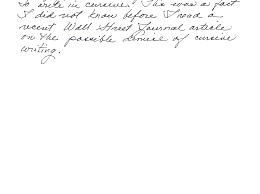 to write in cursive! This was a fact
I did not know before I read a
recent Wall Street Journal article
on the possible demise of cursive
writing.